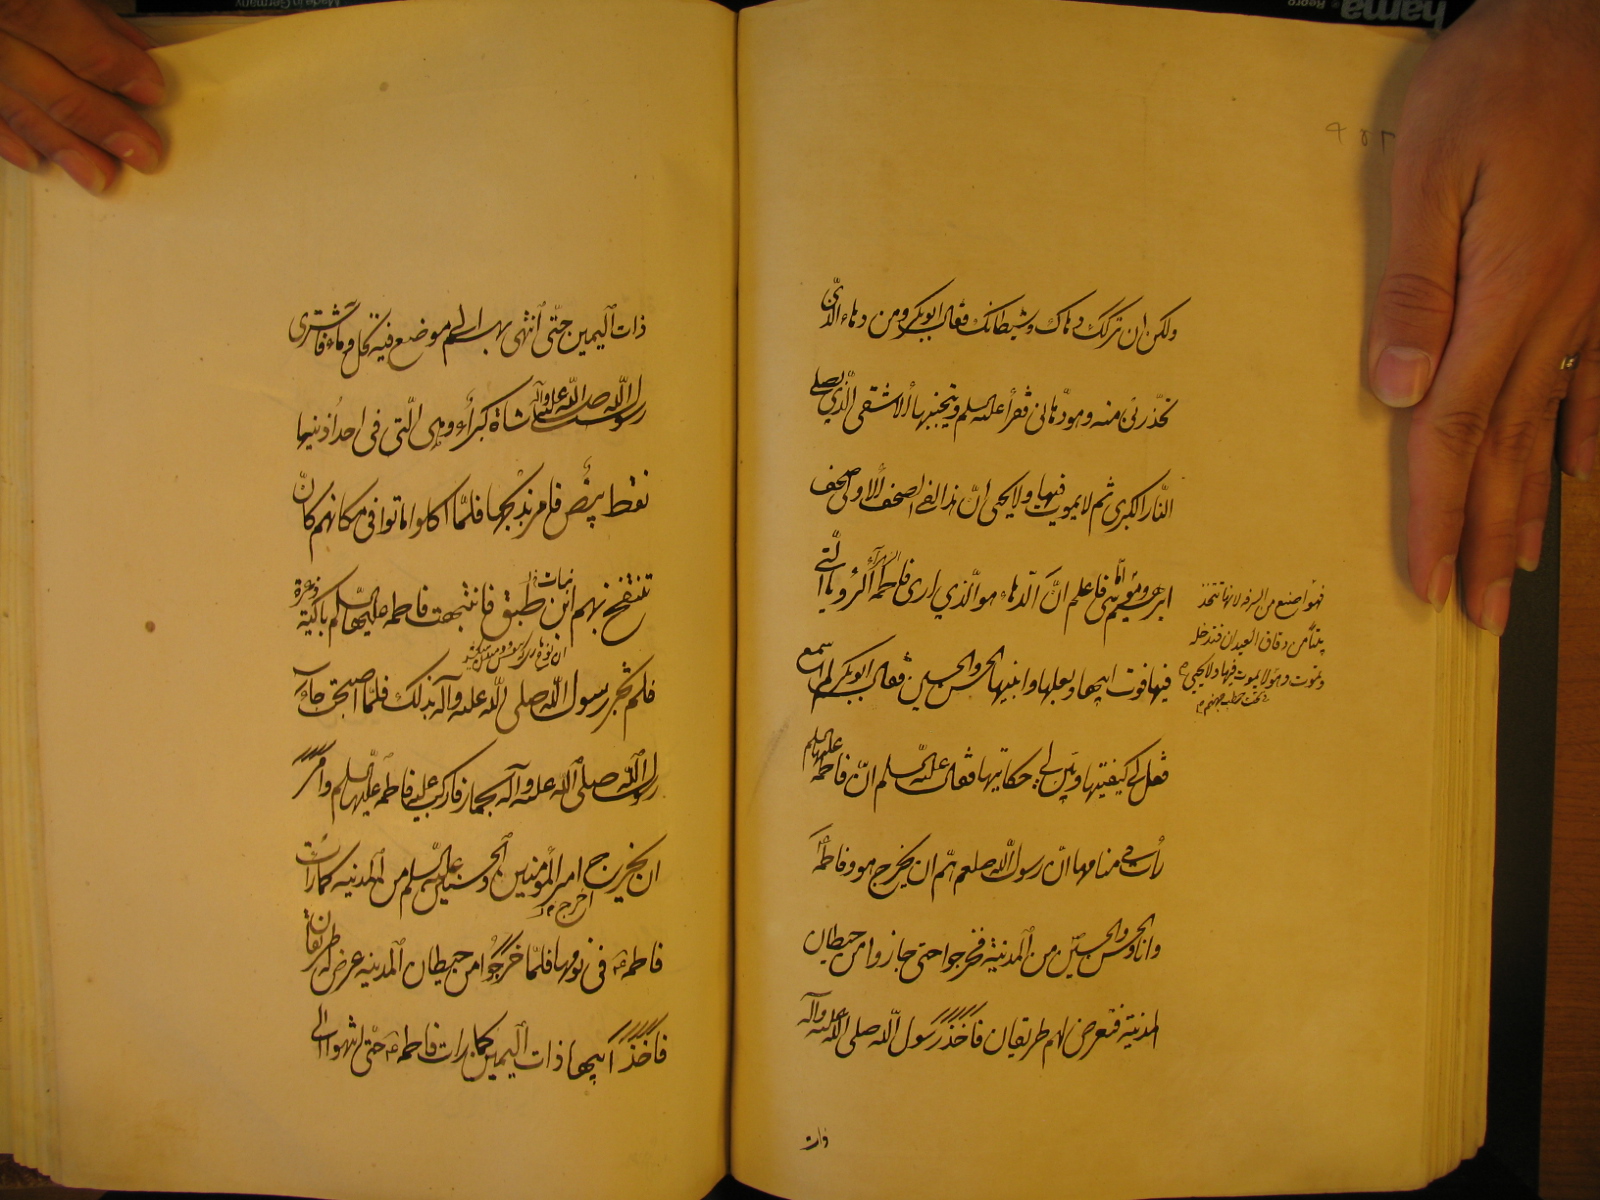 ولكن ان تركك دهاك وشيطانك فقال ابوبكر ومن دهاء الذي
يحذرني منه وهو دهاني فقرأ عليه السلم ويتجنبها الاشقى الذي يصلى
النار الكبرى ثم لا يموت فيها ولا يحيى ان هذا لفي الصحف الاولى صحف
ابرهيم وموسى فاعلم ان الدهاء هو الذي ارى فاطمة الرؤيا التي
فيها فوت ابيها وبعلها وابنيها الحسن والحسين فقال ابوبكر لم اسمع
فقل لي كيفيتها وبين لي حكايتها فقال عليه السلم ان فاطمة عليها السلم
رأت في منامها ان رسول الله صلعم هم ان يخرج هو وفاطمة
وانا والحسن والحسين من المدينة فخرجوا حتى جازوا من حيطان
المدينة فتعرض لهم طريقان فاخذ رسول الله صلى الله عليه وآله
ذات
ولا يموت فيها ولا يحيى
ذات اليمين حتى انتهى بهم الى موضع فيه نخل وماء فاشترى
رسول الله صلى الله عليه وآله شاة كبراء وهي التي في احد اذنيها
نقط بيض فامر بذبحها فلما اكلوا ماتوا في مكانهم كان
فانتبهت فاطمة عليها السلم باكية وذعرة
فلم تخبر رسول الله صلى الله عليه وآله بذلك فلما اصبحت جاء
رسول الله صلى الله عليه وآله بحمار فاركب عليه فاطمة عليها السلم وامر
ان يخرج امير المؤمنين والحسن والحسين عليهم السلم من المدينة كما رأت
فاطمة ع في نومها فلما خرجوا من حيطان المدينة عرض له طريقان
فاخذ ابيها ذات اليمين كما رات فاطمة ع حتى انتهوا الى
hama
Repro
Made in Germany